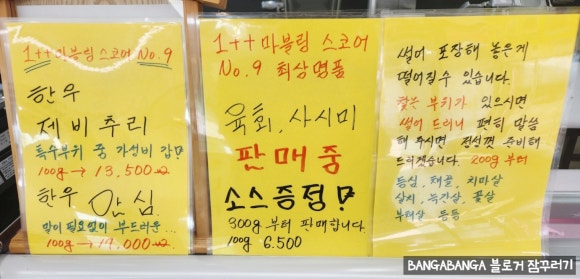 1++ 마블링 스코어 No.9
한우
제비추리
특수부위 중 가성비 갑!!
100g → 13,500
한우 안심
말이 필요없이 부드러운...
100g → 19,000
1++ 마블링 스코어
No.9 최상명품
육회, 사시미
판매중
소스증정!
300g 부터 판매합니다.
100g 6.500
썰어 포장해 놓은게
떨어질수 있습니다.
찾는 부위가 있으시면
썰어 드리니 편히 말씀
해 주시면 정성껏 준비해
드리겠습니다. 200g 부터
등심, 채끝, 치마살
살치, 늑간살, 꽃살
부채살 등등
BANGABANGA 블로거 잠꾸러기